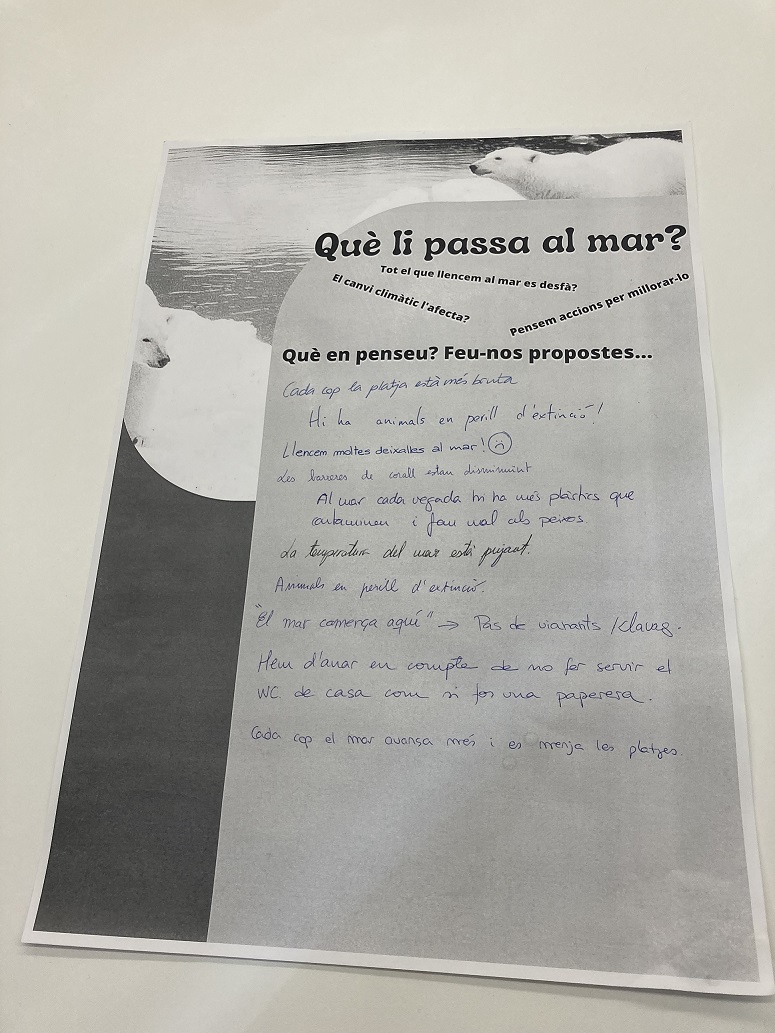 Què li passa al mar?
Tot el que llencem al mar es desfà?
El canvi climàtic l'afecta?
Pensem accions per millorar-lo
Què en penseu? Feu-nos propostes...
Cada cop la platja està més bruta
Hi ha animals en perill d'extinció!
Llencem moltes deixalles al mar! ☹
Les barreres de corall estan disminuint
Al mar cada vegada hi ha més plàstics que
contaminen i fan mal als peixos
La temperatura del mar està pujant.
Animals en perill d'extinció.
"El mar comença aquí" → Pas de vianants / clavag.
Hem d'anar en compte de no fer servir el
WC de casa com si fos una paperera.
Cada cop el mar avança més i es menja les platges.